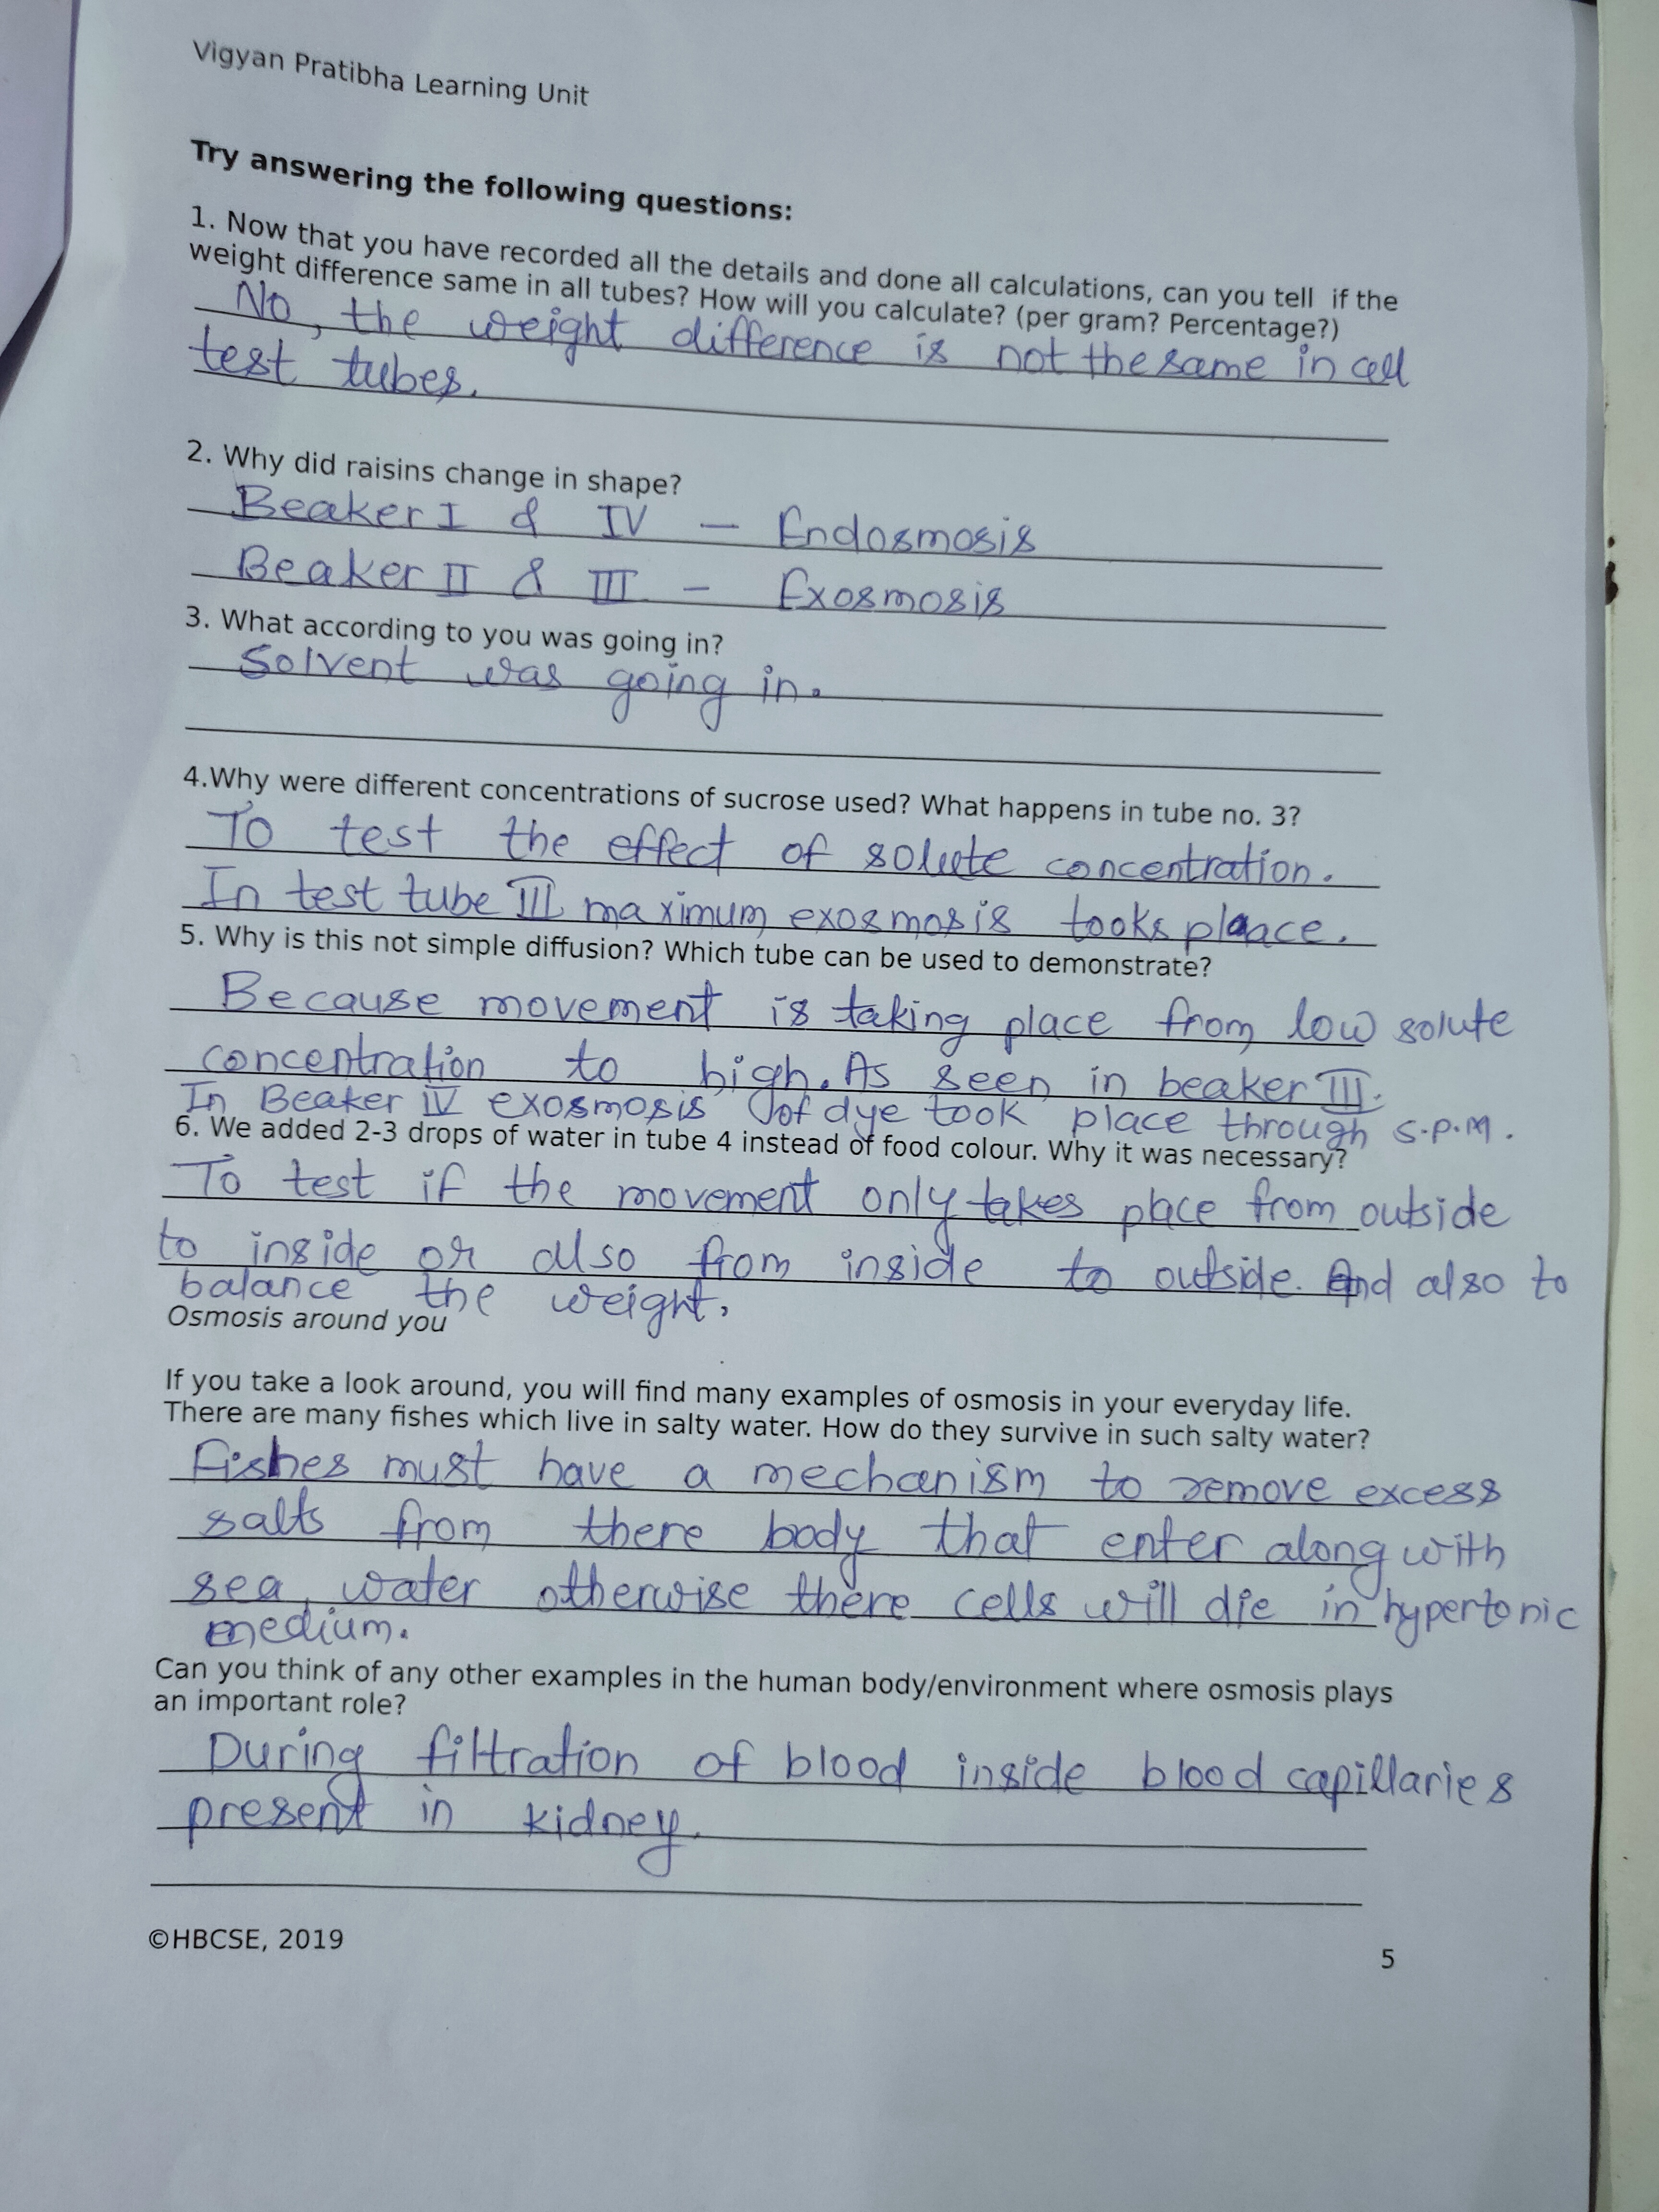 Vigyan Pratibha Learning Unit
Try answering the following questions:
1. Now that you have recorded all the details and done all calculations, can you tell if the
weight difference same in all tubes? How will you calculate? (per gram? Percentage?)
No, the weight difference is not the same in all
test tubes.
2. Why did raisins change in shape?
Beaker I & IV — Endosmosis
Beaker II & III - Exosmosis
3. What according to you was going in?
Solvent was going in.
4.Why were different concentrations of sucrose used? What happens in tube no. 3?
To test the effect of solute concentration.
In test tube III maximum exosmosis tooks plaace.
5. Why is this not simple diffusion? Which tube can be used to demonstrate?
Because movement is taking place from low solute
concentration to high. As seen in beaker III.
In Beaker IV exosmosis of dye took place through S.P.M.
6. We added 2-3 drops of water in tube 4 instead of food colour. Why it was necessary?
To test if the movement only takes place from outside
to inside or also from inside to outside. And also to
balance the weight.
Osmosis around you
If you take a look around, you will find many examples of osmosis in your everyday life.
There are many fishes which live in salty water. How do they survive in such salty water?
Fishes must have a mechanism to remove excess
salts from there body that enter along with
sea water otherwise there cells will die in hypertonic
medium.
Can you think of any other examples in the human body/environment where osmosis plays
an important role?
During filtration of blood inside blood capillaries
present in kidney.
©HBCSE, 2019
5